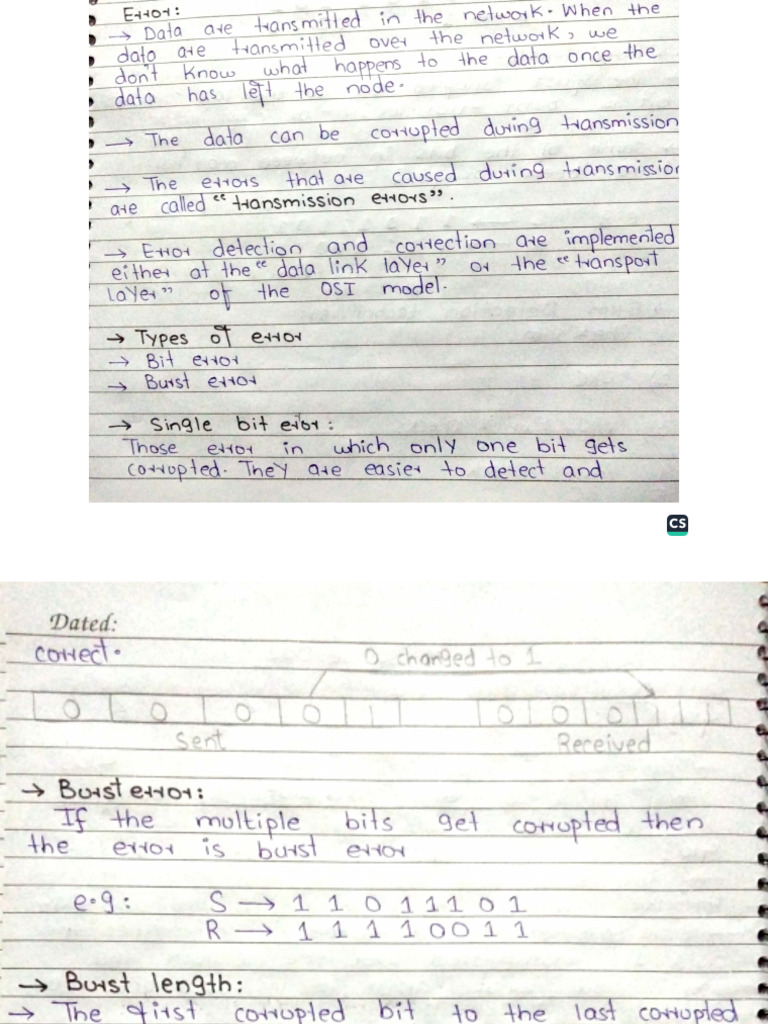 Error:
→ Data are transmitted in the network. When the
data are transmitted over the network, we
don't know what happens to the data once the
data has left the node.
→ The data can be corrupted during transmission
→ The errors that are caused during transmission
are called "transmission errors".
→ Error detection and correction are implemented
either at the "data link layer" or the "transport
layer" of the OSI model.
→ Types of error
→ Bit error
→ Burst error
→ Single bit error:
Those error in which only one bit gets
corrupted. They are easier to detect and
CS
Dated:
correct.
0 changed to 1
0 0 0 0 1 0 0 0 1 1
Sent Received
→ Burst error:
If the multiple bits get corrupted then
the error is burst error
e.g: S → 1 1 0 1 1 1 0 1
R → 1 1 1 1 0 0 1 1
→ Burst length:
→ The first corrupted bit to the last corrupted